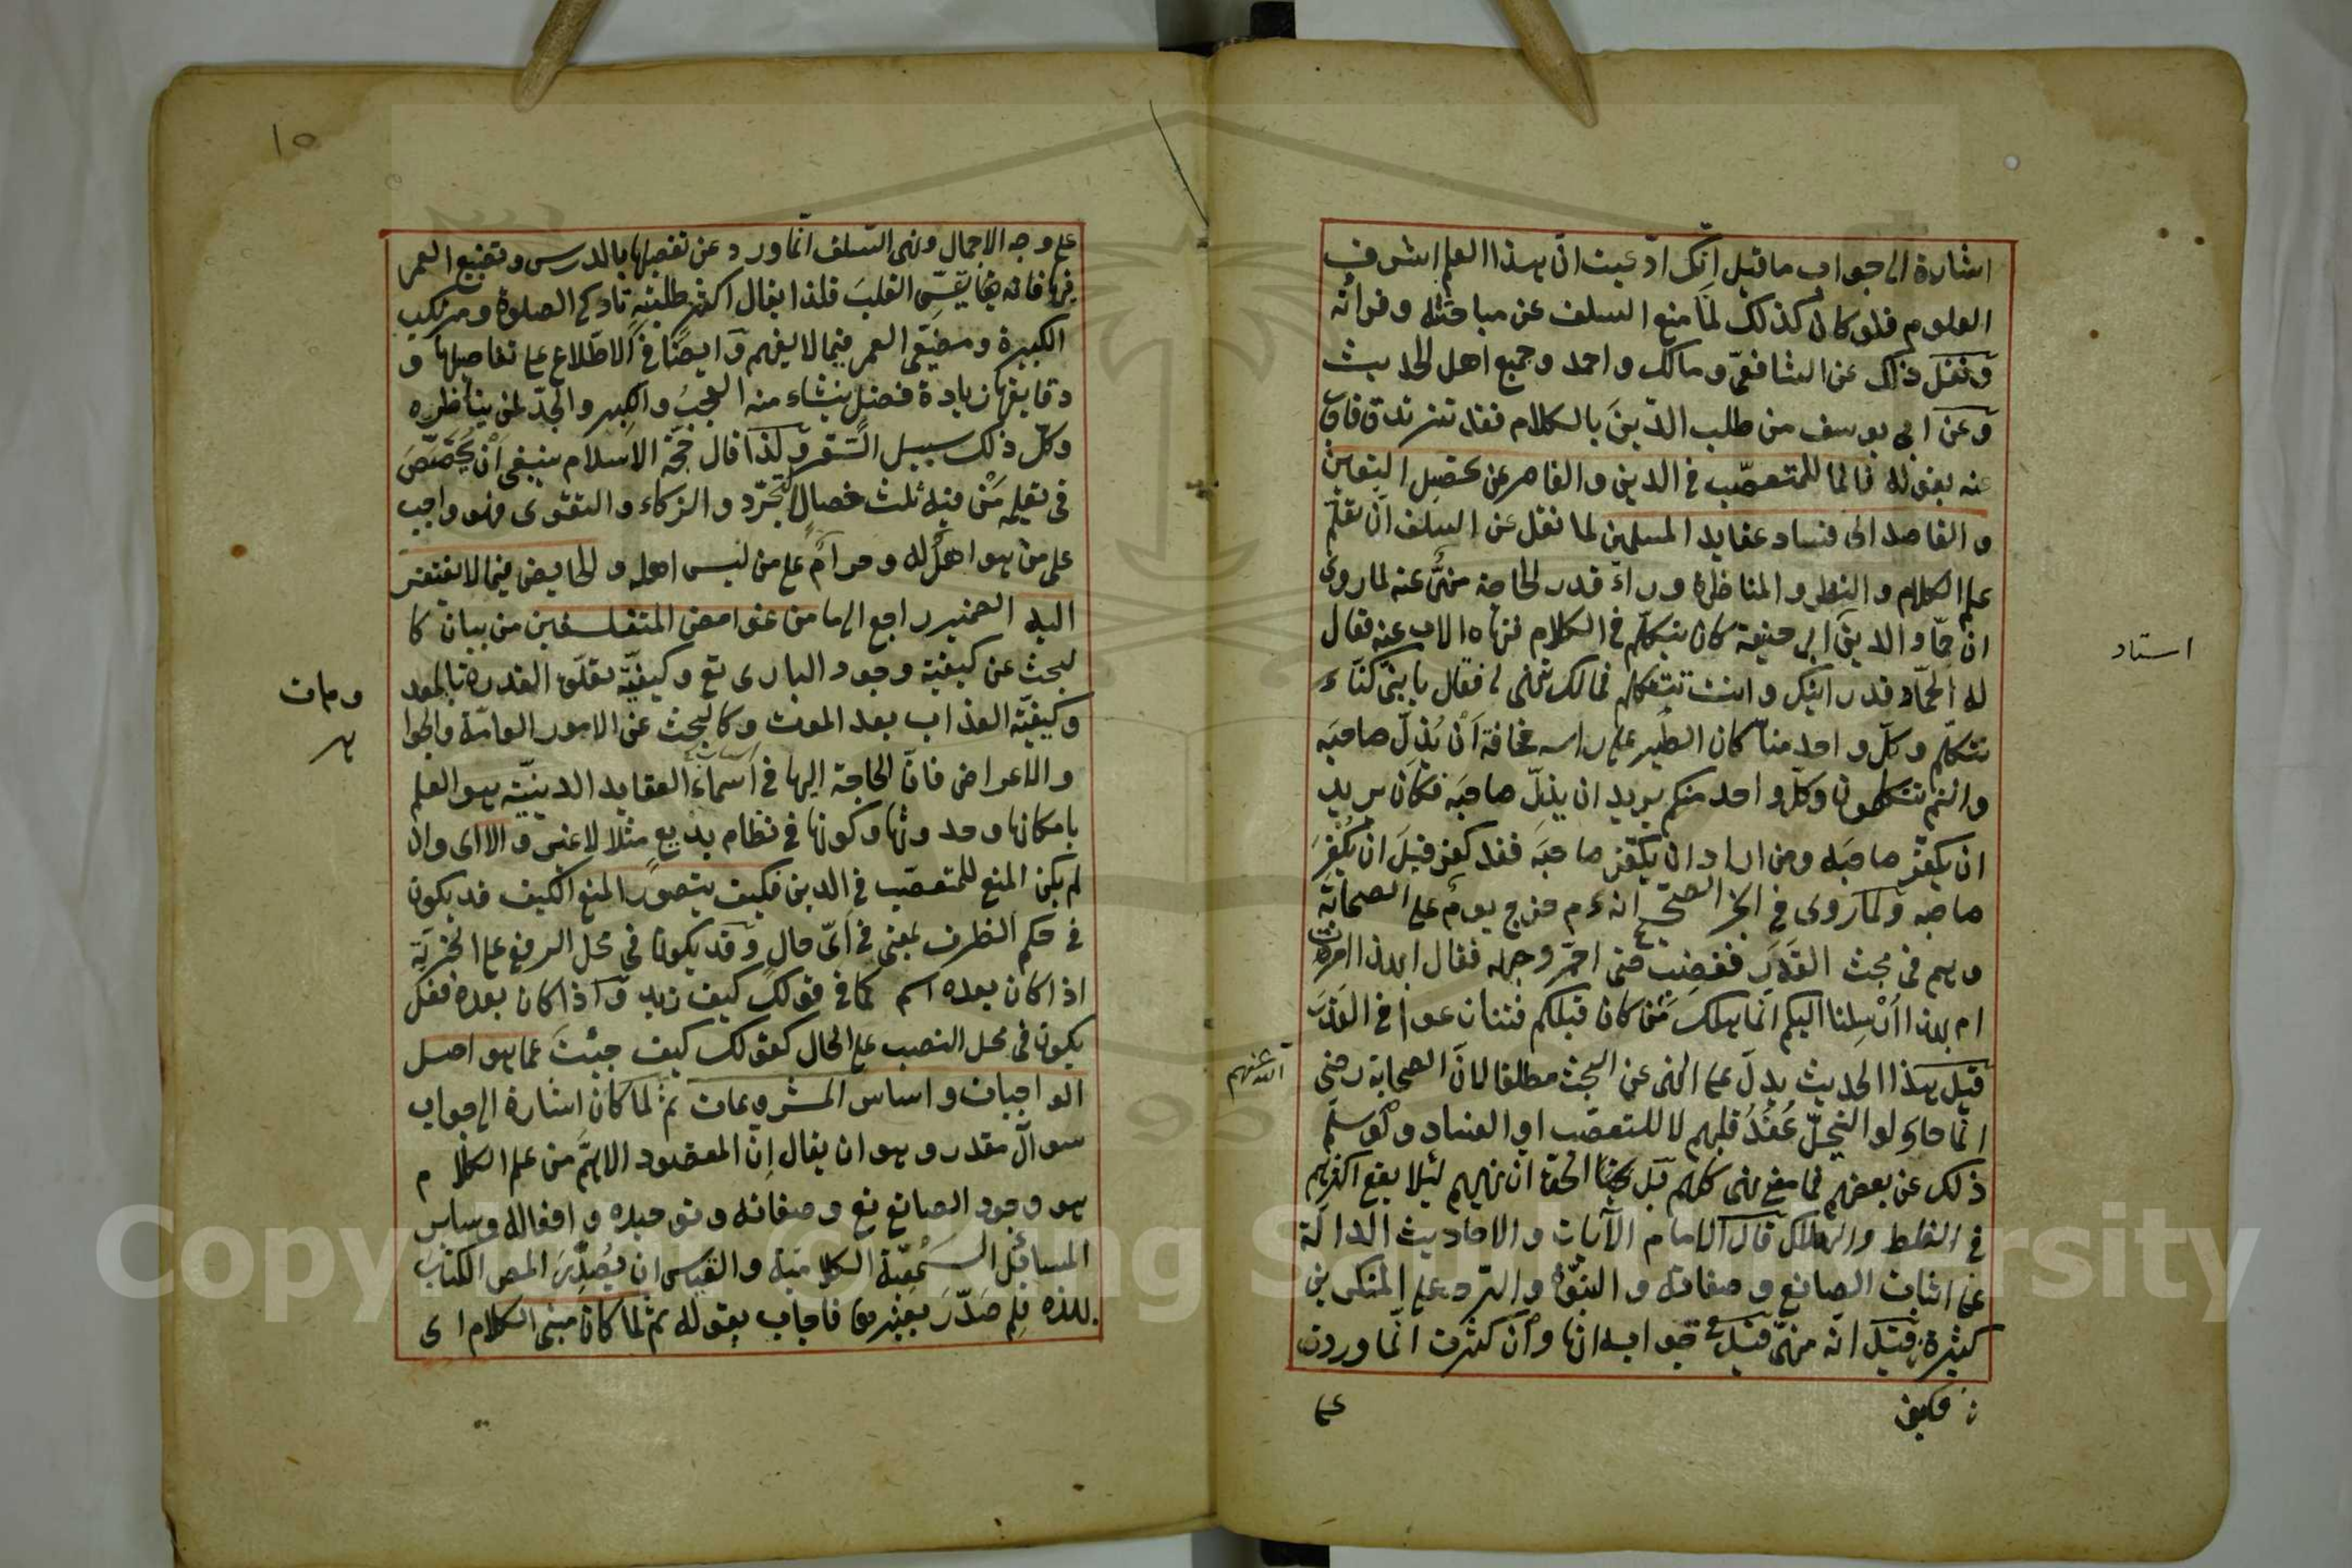 اشارة الى جواب ما قيل انّك ادّعيت انّ هذا العلم اشرف
العلوم فلو كان كذلك لمّا منع السلف عن مباحثه وقرائه
ونقل ذلك عن الشافعيّ ومالك واحمد وجميع اهل الحديث
وعن ابى يوسف من طلب الدّين بالكلام فقد تزندق فاجاب
عنه بقوله فانما للمتعصّب في الدين والقاصر عن تحصيل اليقين
والقاصد الى فساد عقايد المسلمين لما نقل عن السلف انّ تعلّم
علم الكلام والنظر والمناظرة وراء قدر الحاجة منهىّ عنه لما روى
ان حمّاد الدين ابى حنيفة كان يتكلّم في الكلام فنهاه الاب عنه فقال
له الحمّاد قد رأيتك وانت تتكلم فمالك تنهنى فقال يا بنىّ كنّا
نتكلّم وكلّ واحد منّا كان الطير على رأسه مخافة أن يُذِلّ صاحبَه
وانتم تتكلمون وكلّ واحد منكم يريد ان يذلّ صاحبَه فكان يريد
ان يكفّر صاحبه ومن اراد ان يكفّر صاحبَه فقد كفر قبلَ ان يُكفِّرَ
صاحبه ولما روى في الصحيح انه ءم خرج يومٌ على الصحابة
وهم في بحث القَدَر فغضِب حتى احمرّ وجهه فقال ابهذا امرتُ
ام بهذا اُرْسِلنا اليكم انّما هلك مَن كان قبلكم في القَدَر
قيل هذا الحديث يدلّ على النهى عن البحث مطلقا لانّ الصحابة رضى
الله عنهم
انّما حاولوا لنحلّ عُقَدُ قلبهم لا للتعصّب او العناد ولو سلّم
ذلك عن بعضهم فما معنى نهى كلهم قبل الحقّ ان نهيهم لئلا يقع اكثرهم
في الغلط والهلاك قال الامام الآيات والاحاديث الدالّة
على اثبات الصانع وصفاته والنبوّة والردّ على المنكرين
كثيرة فكيف قيل انّه منهىّ قيل في جوابه انها وان كثرت انّما وردت
على
استاد
١٥
على وجه الاجمال ونهى السلف انّما ورد عن تفصيلها بالدرس وتضييع العمر
فيها فانه يقسّى القلبَ فلذا يقال اكثر طلبته تاركى الصلوة ومرتكب
الكبيرة ومضيّعى العمر فيما لا يفهم وايضًا في الاطّلاع على تفاصيلها و
دقايقها زيادة فضل ينشاء منه العجبُ والكبر والجدّ لمن يناظره
وكلّ ذلك سبيل الشر ولذا قال حجّة الاسلام ينبغى اَنْ يُخَصَّصَ
في تعليمه مَنْ فيه ثلث خصالٍ التجرّد والزكاء والتقوى فهو واجب
على من هو اهلٌ له وحرامٌ على من ليس اهله والخايض فيما لا يفتقر
اليه الضمير راجع الى ما من غوامض المتفلسفين من بيان كا
لبحث عن كيفيّة وجود البارى تع وكيفيّة تعلّق القدرة بالمعد
ومات
وكيفيّة العذاب بعد الموت وكالبحث عن الامور العامّة والجوا
هر
والاعراض فانّ الحاجة اليها في العقايد الدينيّة هو العلم
بامكانها وحدوثها وكونها في نظام بديع مثلا لا غير والا اى وان
لم يكن المنع للمتعصّب في الدين فكيف يتصوّر المنع الكيف قد يكون
في حكم الظرف بمعنى في اىّ حال وقد يكون في محل الرفع على الخبريّة
اذا كان بعده اسم كما في قولك كيف زيد واذا كان بعده فعل
يكون في محل النصب على الحال كقولك كيف جئتَ عما هو اصل
الواجبات واساس المشروعات ثم لما كان اشارة الى جواب
سوال مقدر وهو ان يقال اِنّ المقصود الاهمّ من علم الكلام
هو وجود الصانع تع وصفاته وتوحيده وافعاله وساير
المسائل السَمعيّة الكلاميّة والقياس ان يُصَدِّرَ المص الكتابَ
بهذه فلِم صَدّرَ بغيرها فاجاب بقوله ثم لما كان مبنى الكلام اى